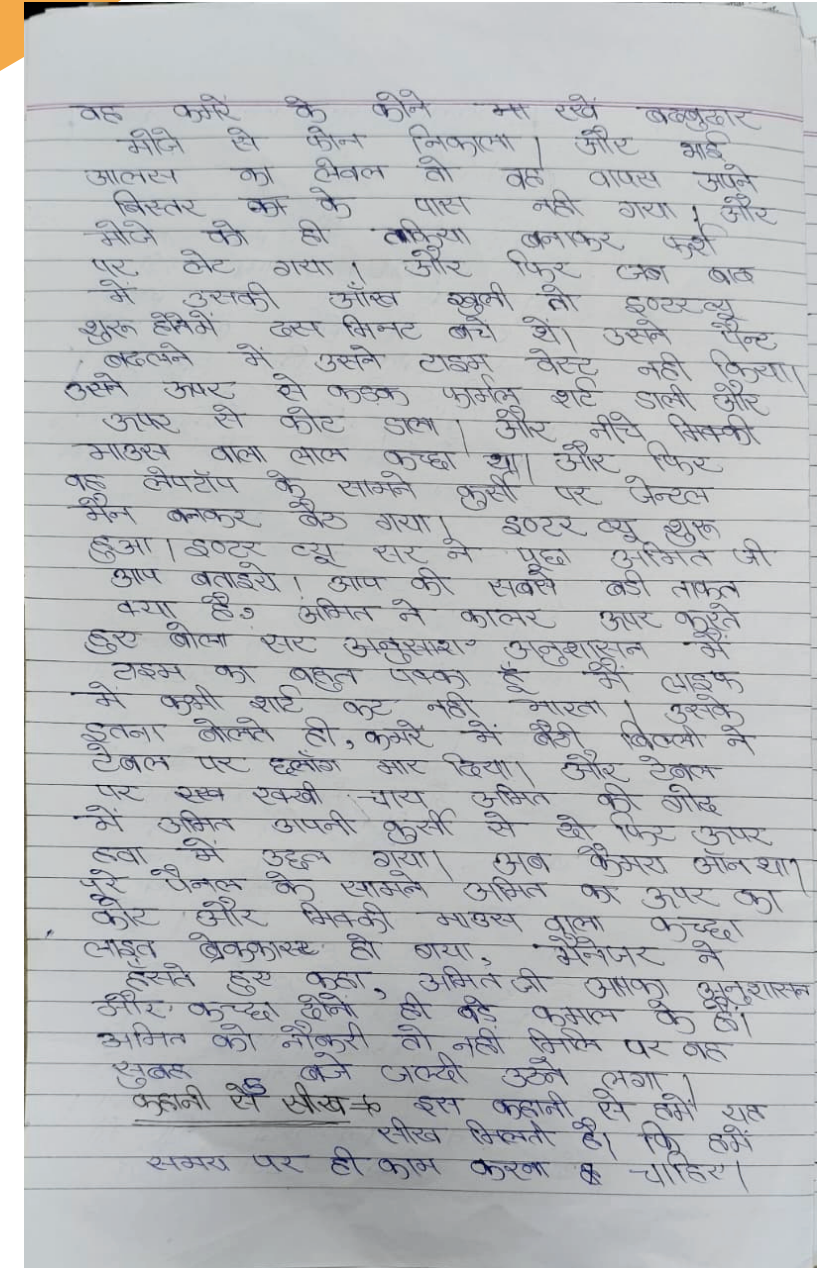 वह कमरें के कोने मा रखें बदबुदार
मोजे से फोन निकाला। और भाई
आलस का लेवल तो वह वापस अपने
बिस्तर का के पास नही गया। और
मोजे को ही तकिया बनाकर फर्श
पर लेट गया। और फिर जब बाद
में उसकी आँख खुली तो इण्टरव्यू
शुरू होनेमें दस मिनट बचें थें। उसने पैन्ट
बदलने में उसने टाइम वेस्ट नही किया।
उसने ऊपर से कड़क फार्मल शर्ट डाली और
ऊपर से कोट डाला। और नीचे मिक्की
माउस वाला लाल कच्छा था। और फिर
वह लेपटॉप के सामने कुर्सी पर जेन्टल
मैन बनकर बैठ गया। इण्टर व्यू शुरू
हुआ। इण्टर व्यू सर ने पूछा अमित जी
आप बताइये। आप की सबसे बडी ताकत
क्या है? अमित ने कालर ऊपर करते
हुए बोला सर अनुसाश अनुशासन मैं
टाइम का बहुत पक्का हूँ मैं लाइफ
में कभी शार्ट कट नही मारता। उसके
इतना बोलते ही, कमरे में बैठी बिल्ली ने
टेबल पर छलाँग मार दिया। और टेबल
पर रख रक्खी चाय अमित की गोद
में अमित अपनी कुर्सी से दो फिट ऊपर
हवा में उछल गया। अब कैमरा ऑन था।
पूरे पैनल के सामने अमित का ऊपर का
कोट और मिक्की माउस वाला कच्छा
लाइव ब्रेककास्ट हो गया, मैनेजर ने
हँसते हुए कहा, अमित जी आपका अनुशासन
और कच्छा दोनों ही बडे कमाल के हैं।
अमित को नौकरी तो नही मिलि पर वह
सुबह 5 बजे जल्दी उठने लगा।
कहानी से सीख → इस कहानी से हमें यह
सीख मिलती है। कि हमें
समय पर ही काम करना चाहिए।